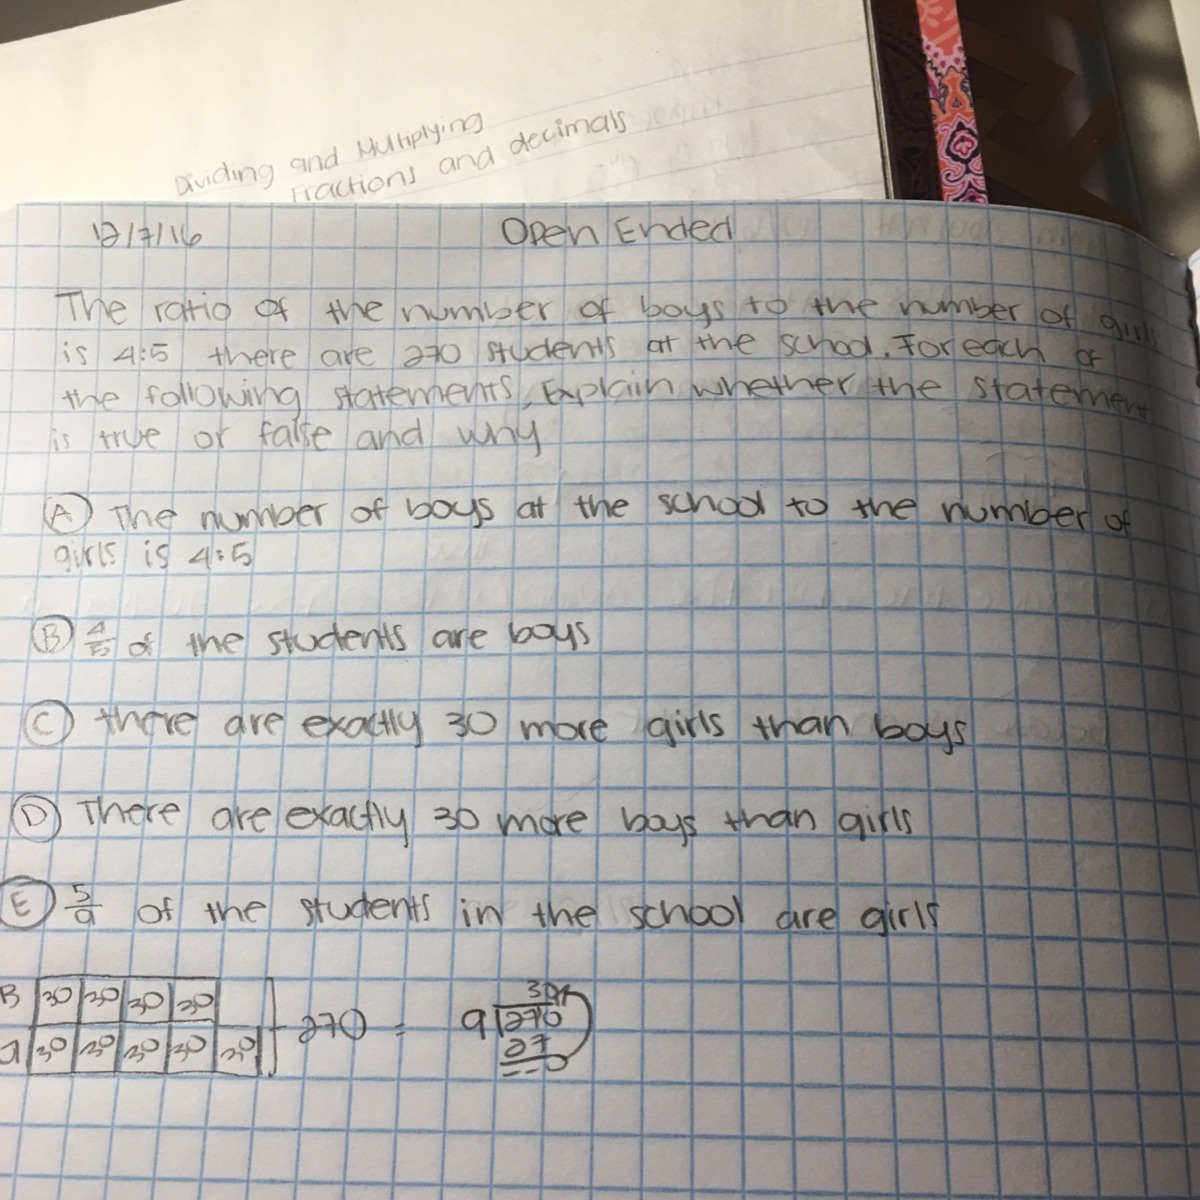 Dividing and Multiplying
Fractions and decimals
12/7/16 Open Ended
The ratio of the number of boys to the number of girls
is 4:5 there are 270 students at the school. For each of
the following statements, Explain whether the statement
is true or false and why
A The number of boys at the school to the number of
girls is 4:5
B 4/5 of the students are boys
C there are exactly 30 more girls than boys
D There are exactly 30 more boys than girls
E 5/9 of the students in the school are girls
B 30 30 30 30
g 30 30 30 30 30
270 =
30
9 270
27
0